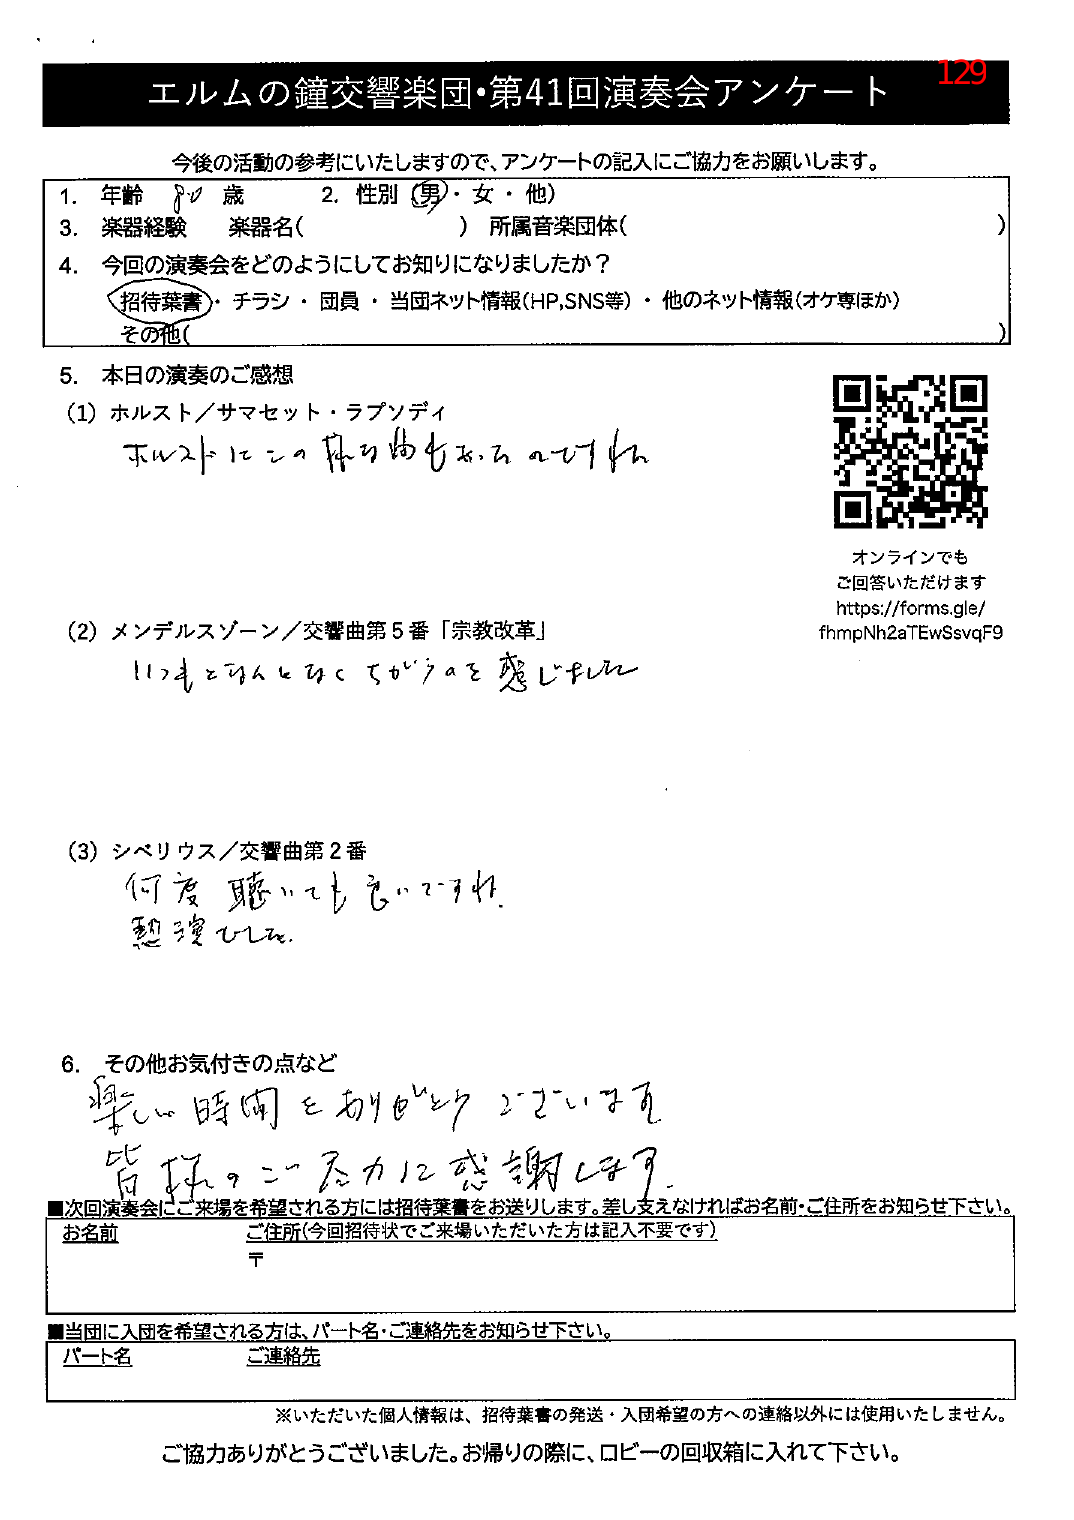 129
エルムの鐘交響楽団・第41回演奏会アンケート
今後の活動の参考にいたしますので、アンケートの記入にご協力をお願いします。
1. 年齢 80 歳 2. 性別 (男・女・他)
3. 楽器経験 楽器名( ) 所属音楽団体( )
4. 今回の演奏会をどのようにしてお知りになりましたか？
招待葉書・チラシ・団員・当団ネット情報(HP,SNS等)・他のネット情報(オケ専ほか)
その他( )
5. 本日の演奏のご感想
(1) ホルスト／サマセット・ラプソディ
ホルストにこの様な曲もあったのですね
オンラインでも
ご回答いただけます
https://forms.gle/
fhmpNh2aTEwSsvqF9
(2) メンデルスゾーン／交響曲第５番「宗教改革」
いつもとなんとなくちがうのを感じました
(3) シベリウス／交響曲第２番
何度聴いても良いですね.
熱演でした.
6. その他お気付きの点など
楽しい時間をありがとうございます
皆様のご尽力に感謝します.
■次回演奏会にご来場を希望される方には招待葉書をお送りします。差し支えなければお名前・ご住所をお知らせ下さい。
お名前 ご住所(今回招待状でご来場いただいた方は記入不要です)
〒
■当団に入団を希望される方は、パート名・ご連絡先をお知らせ下さい。
パート名 ご連絡先
※いただいた個人情報は、招待葉書の発送・入団希望の方への連絡以外には使用いたしません。
ご協力ありがとうございました。お帰りの際に、ロビーの回収箱に入れて下さい。